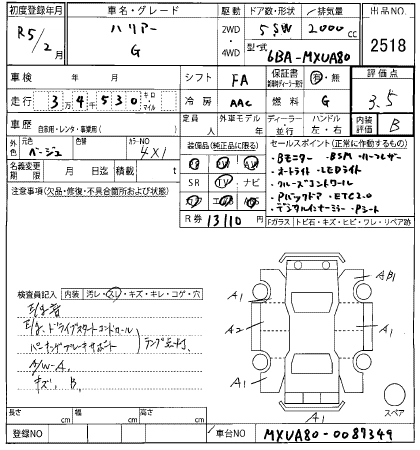 初度登録年月 車名・グレード 駆動 ドア数・形状 排気量 出品NO
R5/2月 ハリアー G 2WD・4WD 5 SW 2000cc 2518
型式 6BA-MXUA80
車検 年 月 シフト FA 保証書 有・無 評価点 3.5
走行 34530 キロ・マイル 冷房 AAC 燃料 G
車歴 自家用・レンタ・事業用( ) 定員 人 外車モデル 年 ディーラー 並行 ハンドル 左・右 内装評価 B
外色 元色 ベージュ 色替 カラーNO 4X1
装備品(純正品に限る) セールスポイント(正常に作動するもの)
名義変更期限 月 日迄 積載 t
SR TV ナビ
R券 13110円
Bモニター・BSM・ハーフレザー
・オートライト・LEDライト
・クルーズコントロール
・Pバックドア・ETC2.0
・デジタルインナーミラー・Pシート
注意事項(欠品・修復・不具合箇所および状態)
Fガラス トビ石・キズ・ヒビ・ワレ・リペア跡
検査員記入 内装 汚レ・スレ・キズ・キレ・コゲ・穴
E/g音
E/g、ドライブスタートコントロール
パーキングブレーキサポート
ランプ点灯
A/W-A
キズ、B
A1 AB1
A2 A1
A1 A1
A1
スペア
長さ cm 幅 cm 高さ cm
登録NO 車台NO MXUA80-0087349